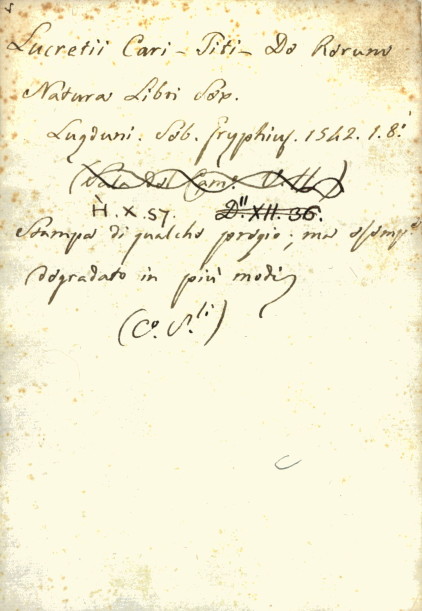 Lucretii Cari - Titi - De Rerum
Natura Libri Sex.
Lugduni. Seb. Gryphius. 1542. 1. 8.
H. X. 57. D" XII. 36.
Stampa di qualche pregio; ma esemp.
degradato in più modi
(C. S.li)